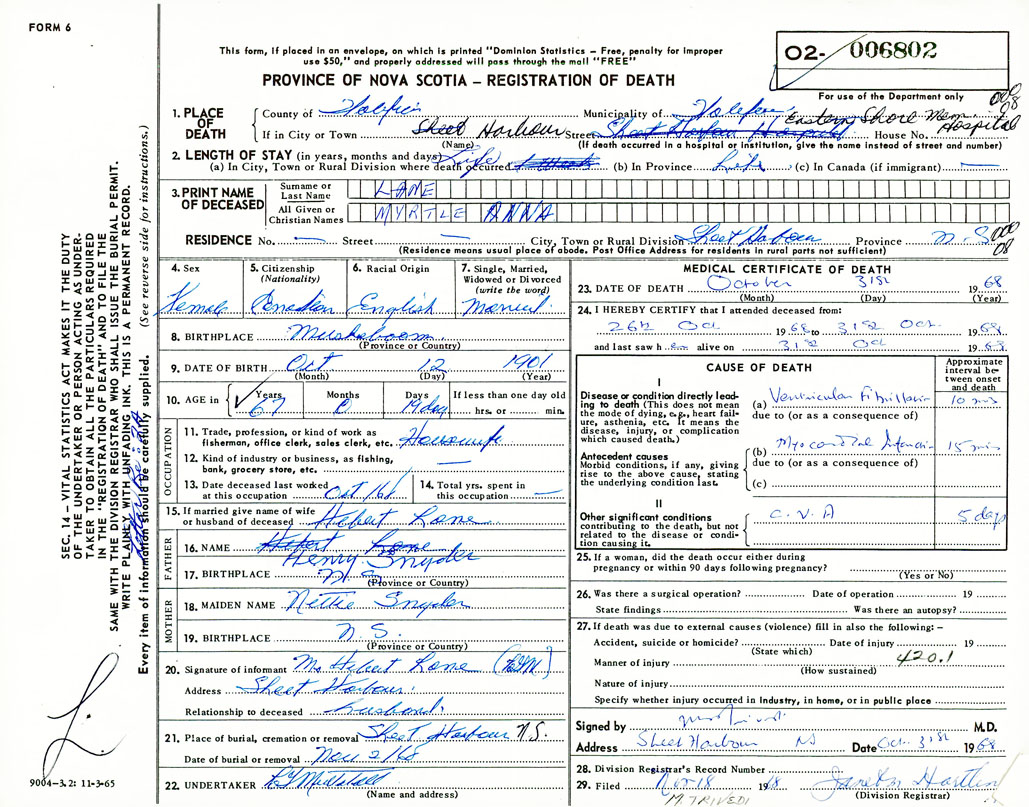 FORM 6
This form, if placed in an envelope, on which is printed "Dominion Statistics – Free, penalty for improper
use $50," and properly addressed will pass through the mail "FREE"
PROVINCE OF NOVA SCOTIA – REGISTRATION OF DEATH
O2- 006802
For use of the Department only
000
08
1. PLACE OF DEATH
County of Halifax Municipality of Halifax
Eastern Shore Mem. Hospital
If in City or Town Sheet Harbour Street Sheet Harbour Hospital House No.
(Name) (If death occurred in a hospital or institution, give the name instead of street and number)
2. LENGTH OF STAY (in years, months and days)
(a) In City, Town or Rural Division where death occurred Life (b) In Province Life (c) In Canada (if immigrant) —
3. PRINT NAME OF DECEASED
Surname or Last Name LANE
All Given or Christian Names MYRTLE ANNA
RESIDENCE No. — Street — City, Town or Rural Division Sheet Harbour Province N.S.
000
08
(Residence means usual place of abode. Post Office Address for residents in rural parts not sufficient)
4. Sex Female
5. Citizenship (Nationality) Canadian
6. Racial Origin English
7. Single, Married, Widowed or Divorced (write the word) Married
8. BIRTHPLACE
(Province or Country)
9. DATE OF BIRTH Oct 12 1901
(Month) (Day) (Year)
10. AGE in Years 67 Months 0 Days 19 days If less than one day old
hrs. or min.
OCCUPATION
11. Trade, profession, or kind of work as
fisherman, office clerk, sales clerk, etc. Housewife
12. Kind of industry or business, as fishing,
bank, grocery store, etc. —
13. Date deceased last worked
at this occupation Oct
14. Total yrs. spent in
this occupation —
15. If married give name of wife
or husband of deceased Hebert Lane
FATHER
16. NAME Hebert Lane
Henry Snyder
17. BIRTHPLACE N.S.
(Province or Country)
MOTHER
18. MAIDEN NAME Nettie Snyder
19. BIRTHPLACE N.S.
(Province or Country)
20. Signature of informant Mr Hebert Lane
Address Sheet Harbour
Relationship to deceased husband
21. Place of burial, cremation or removal Sheet Harbour N.S.
Date of burial or removal Nov 2/68
22. UNDERTAKER
(Name and address)
MEDICAL CERTIFICATE OF DEATH
23. DATE OF DEATH October 31st 1968
(Month) (Day) (Year)
24. I HEREBY CERTIFY that I attended deceased from:
26th Oct 1968 to 31st Oct. 1968
and last saw her alive on 31st Oct 1968
CAUSE OF DEATH
Approximate interval between onset and death
I
Disease or condition directly leading to death (This does not mean the mode of dying, e.g., heart failure, asthenia, etc. It means the disease, injury, or complication which caused death.)
(a) Ventricular Fibrillation 10 mins
due to (or as a consequence of)
Antecedent causes
Morbid conditions, if any, giving rise to the above cause, stating the underlying condition last.
(b) Myocardial Infarction 15 mins
due to (or as a consequence of)
(c)
II
Other significant conditions
contributing to the death, but not related to the disease or condition causing it.
C.V.A 5 days
25. If a woman, did the death occur either during
pregnancy or within 90 days following pregnancy?
(Yes or No)
26. Was there a surgical operation? Date of operation 19
State findings Was there an autopsy?
27. If death was due to external causes (violence) fill in also the following: –
Accident, suicide or homicide? Date of injury 19
(State which)
Manner of injury 420.1
(How sustained)
Nature of injury
Specify whether injury occurred in Industry, in home, or in public place
Signed by M.D.
Address Sheet Harbour NS Date Oct. 31st 1968
28. Division Registrar's Record Number
29. Filed Nov 18 1968 Janet M Hartlin
(Division Registrar)
M. TRIVEDI
SEC. 14 – VITAL STATISTICS ACT MAKES IT THE DUTY
OF THE UNDERTAKER OR PERSON ACTING AS UNDER-
TAKER TO OBTAIN ALL THE PARTICULARS REQUIRED
IN THE "REGISTRATION OF DEATH" AND TO FILE THE
SAME WITH THE DIVISION REGISTRAR WHO SHALL ISSUE THE BURIAL PERMIT.
WRITE PLAINLY WITH UNFADING INK. THIS IS A PERMANENT RECORD.
Every item of information should be carefully supplied. (See reverse side for instructions.)
L.
9004-3.2: 11-3-65